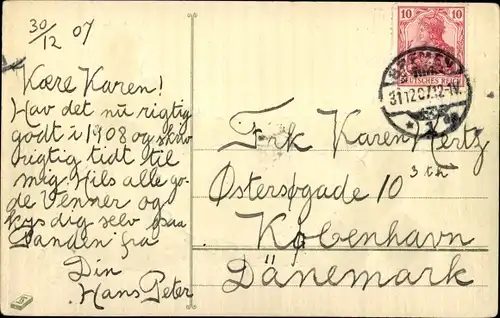 30/12 07
Kære Karen!
Hav det nu rigtig
godt i 1908 og skriv
rigtig tidt til
mig. Hils alle go-
de Venner og
kys dig selv paa
Panden fra
Din
Hans Peter
10 10
DEUTSCHES REICH
BREMEN
31.12.07.12-1V.
Frk Karen Hertz
Østersøgade 10
3 th
København
Dänemark